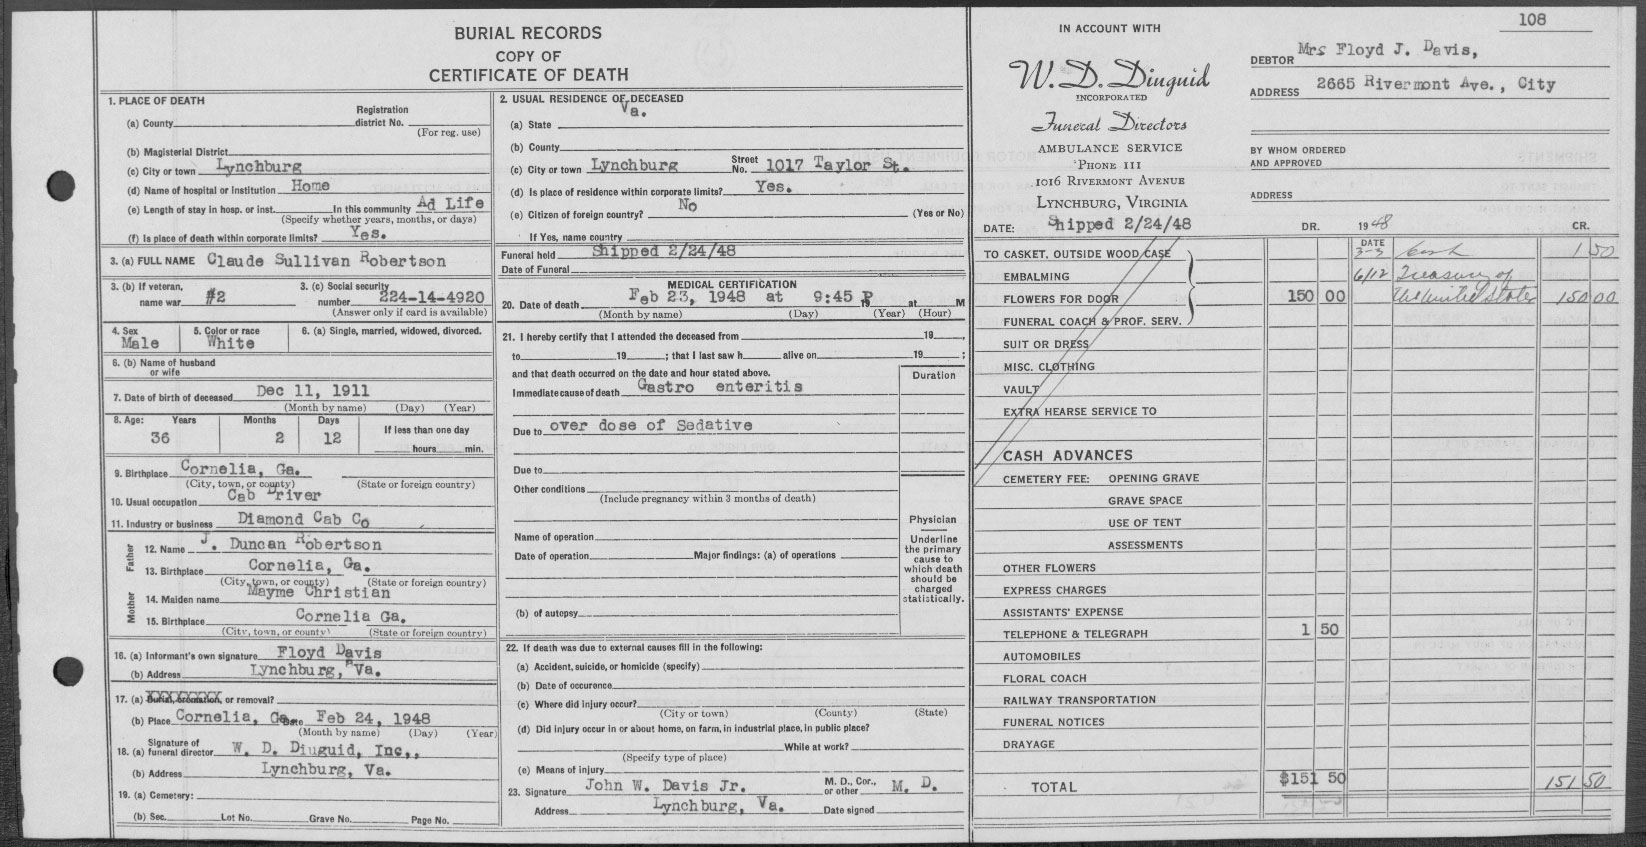 BURIAL RECORDS
COPY OF
CERTIFICATE OF DEATH
1. PLACE OF DEATH
(a) County Registration district No. (For reg. use)
(b) Magisterial District
(c) City or town Lynchburg
(d) Name of hospital or Institution Home
(e) Length of stay in hosp. or inst. In this community Ad Life
(Specify whether years, months, or days)
(f) Is place of death within corporate limits? Yes.
3. (a) FULL NAME Claude Sullivan Robertson
3. (b) If veteran, name war #2 3. (c) Social security number 224-14-4920
(Answer only if card is available)
4. Sex Male 5. Color or race White 6. (a) Single, married, widowed, divorced.
6. (b) Name of husband or wife
7. Date of birth of deceased Dec 11, 1911
(Month by name) (Day) (Year)
8. Age: Years 36 Months 2 Days 12 If less than one day hours min.
9. Birthplace Cornelia, Ga.
(City, town, or county) (State or foreign country)
10. Usual occupation Cab Driver
11. Industry or business Diamond Cab Co
Father
12. Name J. Duncan Robertson
13. Birthplace Cornelia, Ga.
(City, town, or county) (State or foreign country)
Mother
14. Maiden name Mayme Christian
15. Birthplace Cornelia Ga.
(City, town, or county) (State or foreign country)
16. (a) Informant's own signature Floyd Davis
(b) Address Lynchburg, Va.
17. (a) Burial, cremation, or removal?
(b) Place Cornelia, Ga. Date Feb 24, 1948
(Month by name) (Day) (Year)
18. (a) Signature of funeral director W. D. Diuguid, Inc.,
(b) Address Lynchburg, Va.
19. (a) Cemetery:
(b) Sec. Lot No. Grave No. Page No.
2. USUAL RESIDENCE OF DECEASED
(a) State Va.
(b) County
(c) City or town Lynchburg Street No. 1017 Taylor St.
(d) Is place of residence within corporate limits? Yes.
(e) Citizen of foreign country? No (Yes or No)
If Yes, name country
Funeral held Shipped 2/24/48
Date of Funeral
MEDICAL CERTIFICATION
20. Date of death Feb 23, 1948 at 9:45 P 19 at M
(Month by name) (Day) (Year) (Hour)
21. I hereby certify that I attended the deceased from 19 ,
to 19 ; that I last saw h alive on 19 ;
and that death occurred on the date and hour stated above.
Duration
Immediate cause of death Gastro enteritis
Due to over dose of Sedative
Due to
Other conditions
(Include pregnancy within 3 months of death)
Name of operation
Date of operation Major findings: (a) of operations
(b) of autopsy
Physician
Underline the primary cause to which death should be charged statistically.
22. If death was due to external causes fill in the following:
(a) Accident, suicide, or homicide (specify)
(b) Date of occurence
(c) Where did injury occur?
(City or town) (County) (State)
(d) Did injury occur in or about home, on farm, in industrial place, in public place?
While at work?
(Specify type of place)
(e) Means of injury
23. Signature John W. Davis Jr. M. D., Cor., or other M. D.
Address Lynchburg, Va. Date signed
108
IN ACCOUNT WITH
W. D. Diuguid
INCORPORATED
Funeral Directors
AMBULANCE SERVICE
'PHONE 111
1016 RIVERMONT AVENUE
LYNCHBURG, VIRGINIA
DEBTOR Mrs Floyd J. Davis,
ADDRESS 2665 Rivermont Ave., City
BY WHOM ORDERED AND APPROVED
ADDRESS
DATE: Shipped 2/24/48 DR. 1948 CR.
TO CASKET, OUTSIDE WOOD CASE DATE 3-3 Cash 1 50
EMBALMING 6/12 Treasury of
FLOWERS FOR DOOR 150 00 the United States 150 00
FUNERAL COACH & PROF. SERV.
SUIT OR DRESS
MISC. CLOTHING
VAULT
EXTRA HEARSE SERVICE TO
CASH ADVANCES
CEMETERY FEE: OPENING GRAVE
GRAVE SPACE
USE OF TENT
ASSESSMENTS
OTHER FLOWERS
EXPRESS CHARGES
ASSISTANTS' EXPENSE
TELEPHONE & TELEGRAPH 1 50
AUTOMOBILES
FLORAL COACH
RAILWAY TRANSPORTATION
FUNERAL NOTICES
DRAYAGE
TOTAL $151 50 151 50